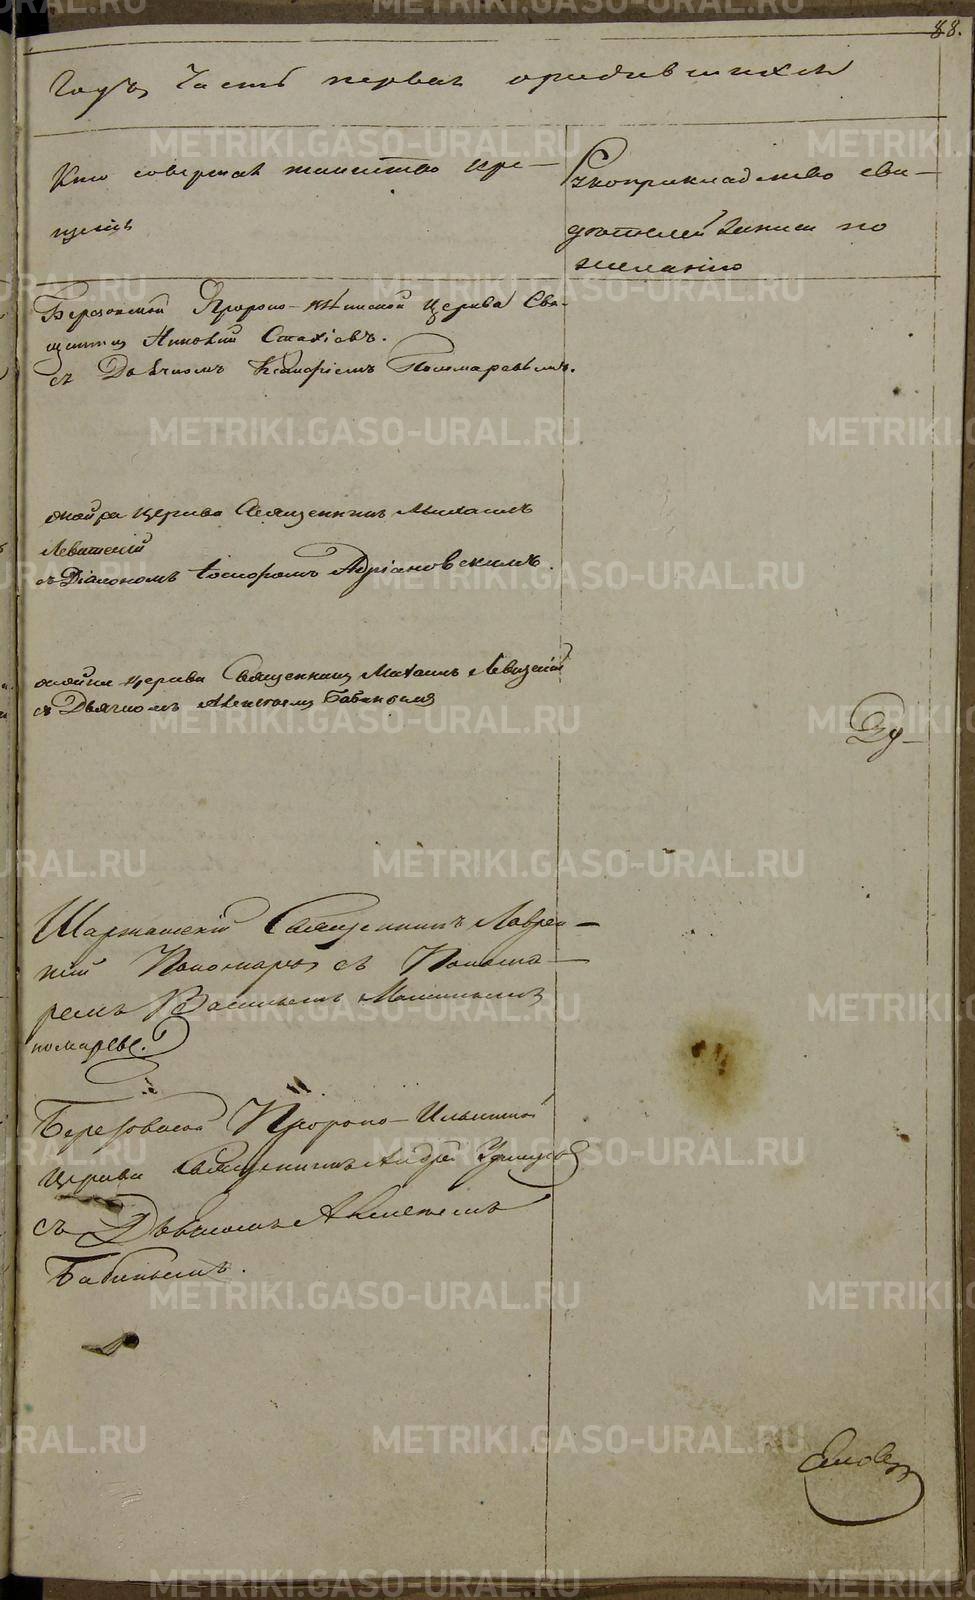 88.
Годъ Часть первая о родившихся
Кто совершалъ таинство кре-
щенія
Рукоприкладство сви-
дѣтелей записи по
желанію
Березовской Пророко-Ильинской Церкви Свя-
щенникъ Стахіевъ.
съ Дьячкомъ Пономаревымъ.
той же церкви Священникъ Михаилъ
Левитскій
съ Діакономъ Адріановскимъ.
той же церкви Священникъ Михаилъ Левицкій
съ Дьячкомъ Алексѣемъ Бабинымъ
Ду-
Шарташскій Священникъ Лаврен-
тій Пономаревъ съ Понома-
ремъ Васильемъ
помаревъ.
Березовской Пророко-Ильинской
Церкви Священникъ Андрей
съ Дьячкомъ Алексѣемъ
Бабинымъ.
METRIKI.GASO-URAL.RU